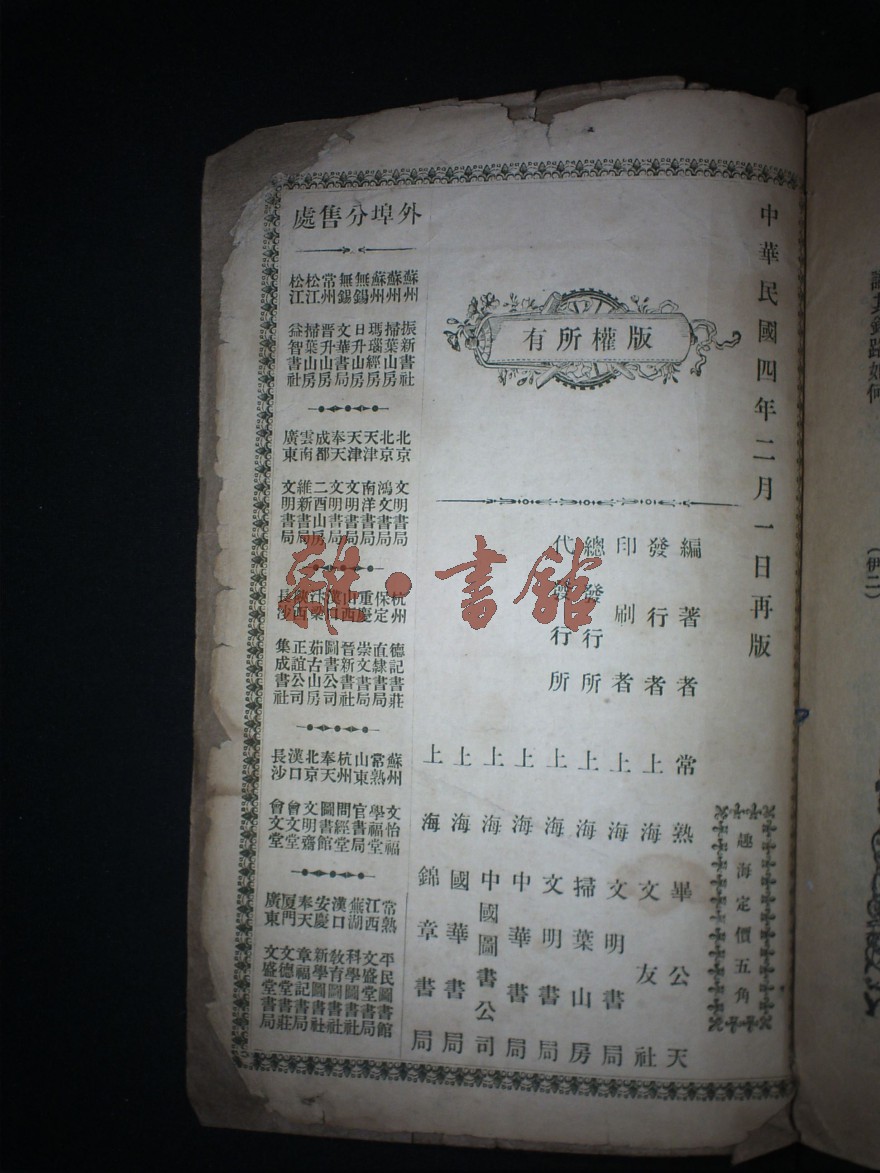 中華民國四年二月一日再版
趣海定價五角
版權所有
編著者 常熟畢公天
發行者 上海文友社
印刷者 上海文明書局
總發行所 上海掃葉山房
代發行所 上海文明書局
上海中華書局
上海中國圖書公司
上海國華書局
上海錦章書局
外埠分售處
蘇州 振新書社
蘇州 掃葉山房
蘇州 瑪瑙經房
無錫 日升山房
無錫 文華書局
常州 晋升山房
松江 掃葉山房
松江 益智書社
北京 文明書局
北京 鴻文書局
天津 南洋書局
天津 文明書局
奉天 文明書局
成都 二酉山房
雲南 維新書局
廣東 文明書局
杭州 德記書莊
保定 直隸書局
重慶 崇文書局
山西 晉新書社
漢口 圖書公司
茹古山房
陝西 正誼公司
長沙 集成書社
蘇州 文怡福
常熟 學福堂
山東 官書局
杭州 問經堂
奉天 圖書館
北京 文明齋
漢口 會文堂
長沙 會文堂
常熟 平民圖書館
江西 文盛堂書局
蕪湖 科學圖書社
漢口 教育圖書社
安慶 新學圖書社
奉天 章福記書局
厦門 文德堂書莊
廣東 文盛堂書局
雜·書館
(伊二)